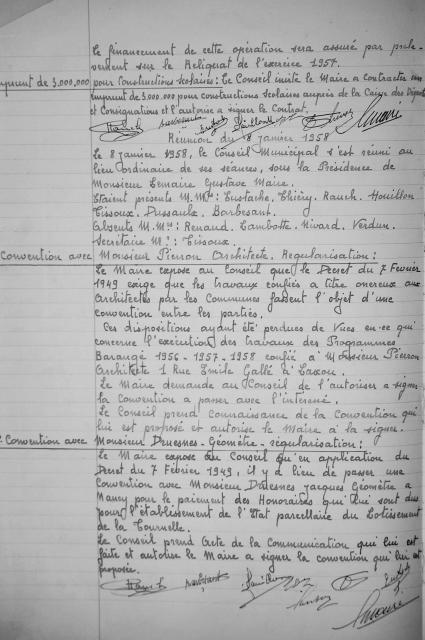 Le financement de cette opération sera assuré par prélè-
vement sur le Reliquat de l'exercice 1957.
emprunt de 3.000.000 pour constructions scolaires: Le Conseil invite le Maire a contracter un
emprunt de 3.000.000 pour constructions scolaires auprès de la Caisse des Dépots
et Consignations et l'autorise a signer le Contrat.
Réunion du 8 janvier 1958
Le 8 janvier 1958, le Conseil Municipal s'est réuni au
lieu ordinaire de ses séances, sous la Présidence de
Monsieur Lemaire Gustave Maire.
Etaient présents M.M.: Eustache, Thiéry. Rauch. Houillon
Tissoux. Dussaulx. Barbesant.
Absents M.M.: Renaud. Lambotte. Nivard. Verdun.
Secrétaire M.: Tissoux.
Convention avec Monsieur Pierron Architecte. Régularisation:
Le Maire expose au Conseil que le Décret du 7 Février
1949 exige que les travaux confiés a titre onéreux aux
Architectes par les Communes fassent l'objet d'une
convention entre les parties.
Ces dispositions ayant été perdues de Vues en ce qui
concerne l'exécution des travaux des Programmes
Barangé 1956-1957-1958 confié à Monsieur Pierron
Architecte 1 Rue Emile Gallé à Laxou.
Le Maire demande au Conseil de l'autoriser a signer
la Convention a passer avec l'intéressé.
Le Conseil prend connaissance de la Convention qui
lui est proposé et autorise le Maire à la signer.
Convention avec Monsieur Duesnes-Géomètre-régularisation:
Le Maire expose au Conseil qu'en application du
Décret du 7 Février 1949, il y a lieu de passer une
Convention avec Monsieur Duesnes Jacques Géomètre a
Nancy pour le paiement des Honoraires qui lui sont dus
pour l'établissement de l'Etat parcellaire du Lotissement
de la Tournelle.
Le Conseil prend Acte de la Communication qui lui est
faite et autorise le Maire a signer la convention qui lui est
proposée.